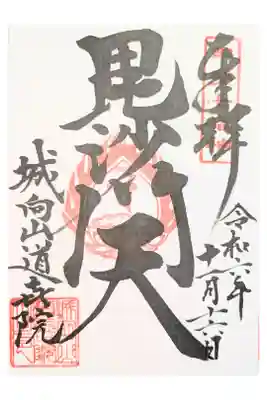 奉拝
令和六年
十一月十六日
毘沙門天
城向山道喜院